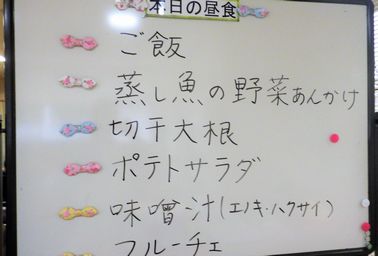 本日の昼食
ご飯
蒸し魚の野菜あんかけ
切干大根
ポテトサラダ
味噌汁(エノキ・ハクサイ)
フルーチェ